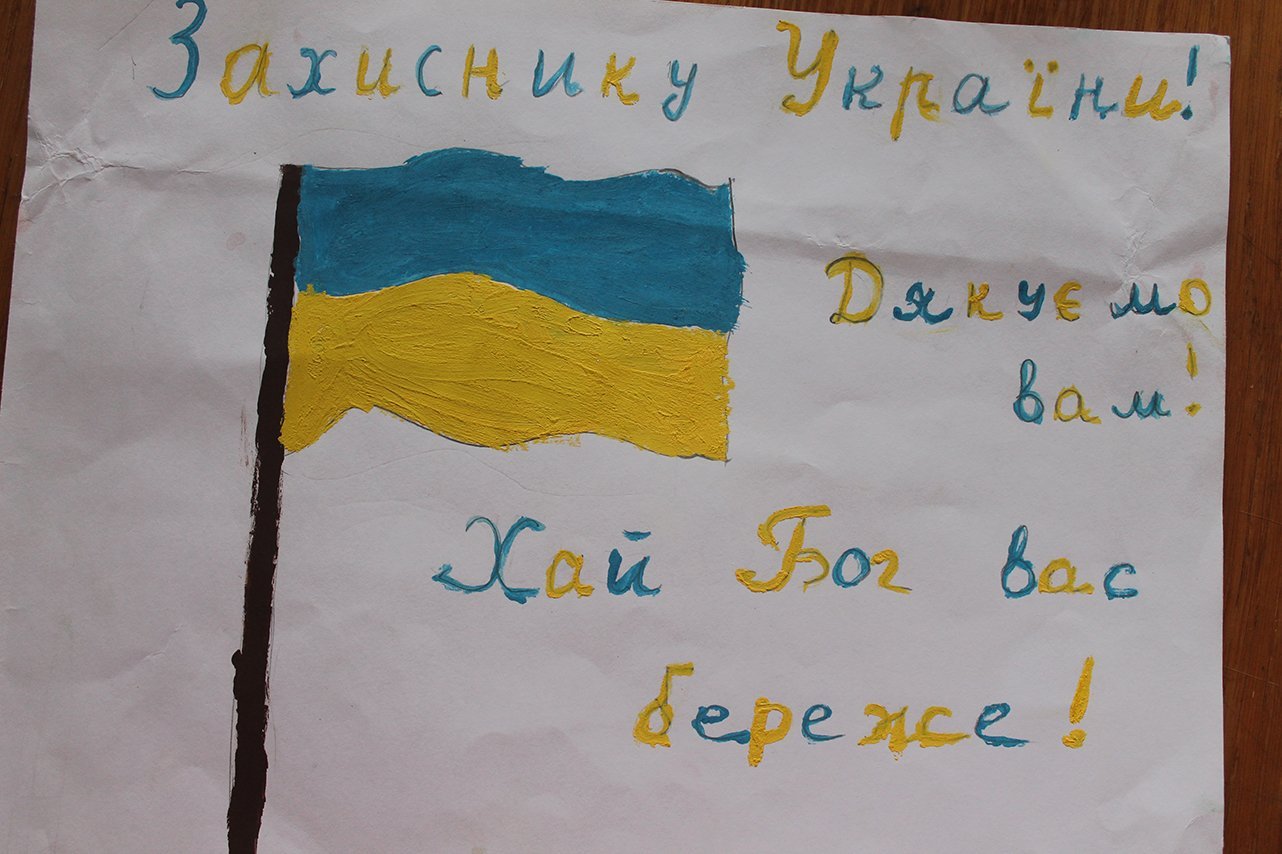 Захиснику України!
Дякуємо
вам!
Хай Бог вас
береже!